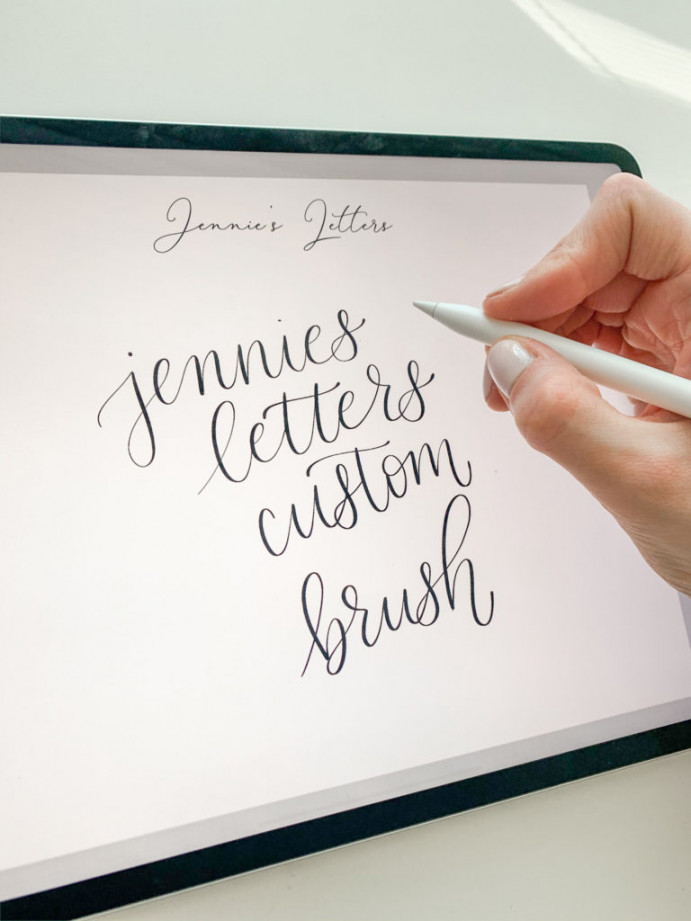 Jennie's Letters
jennies
letters
custom
brush